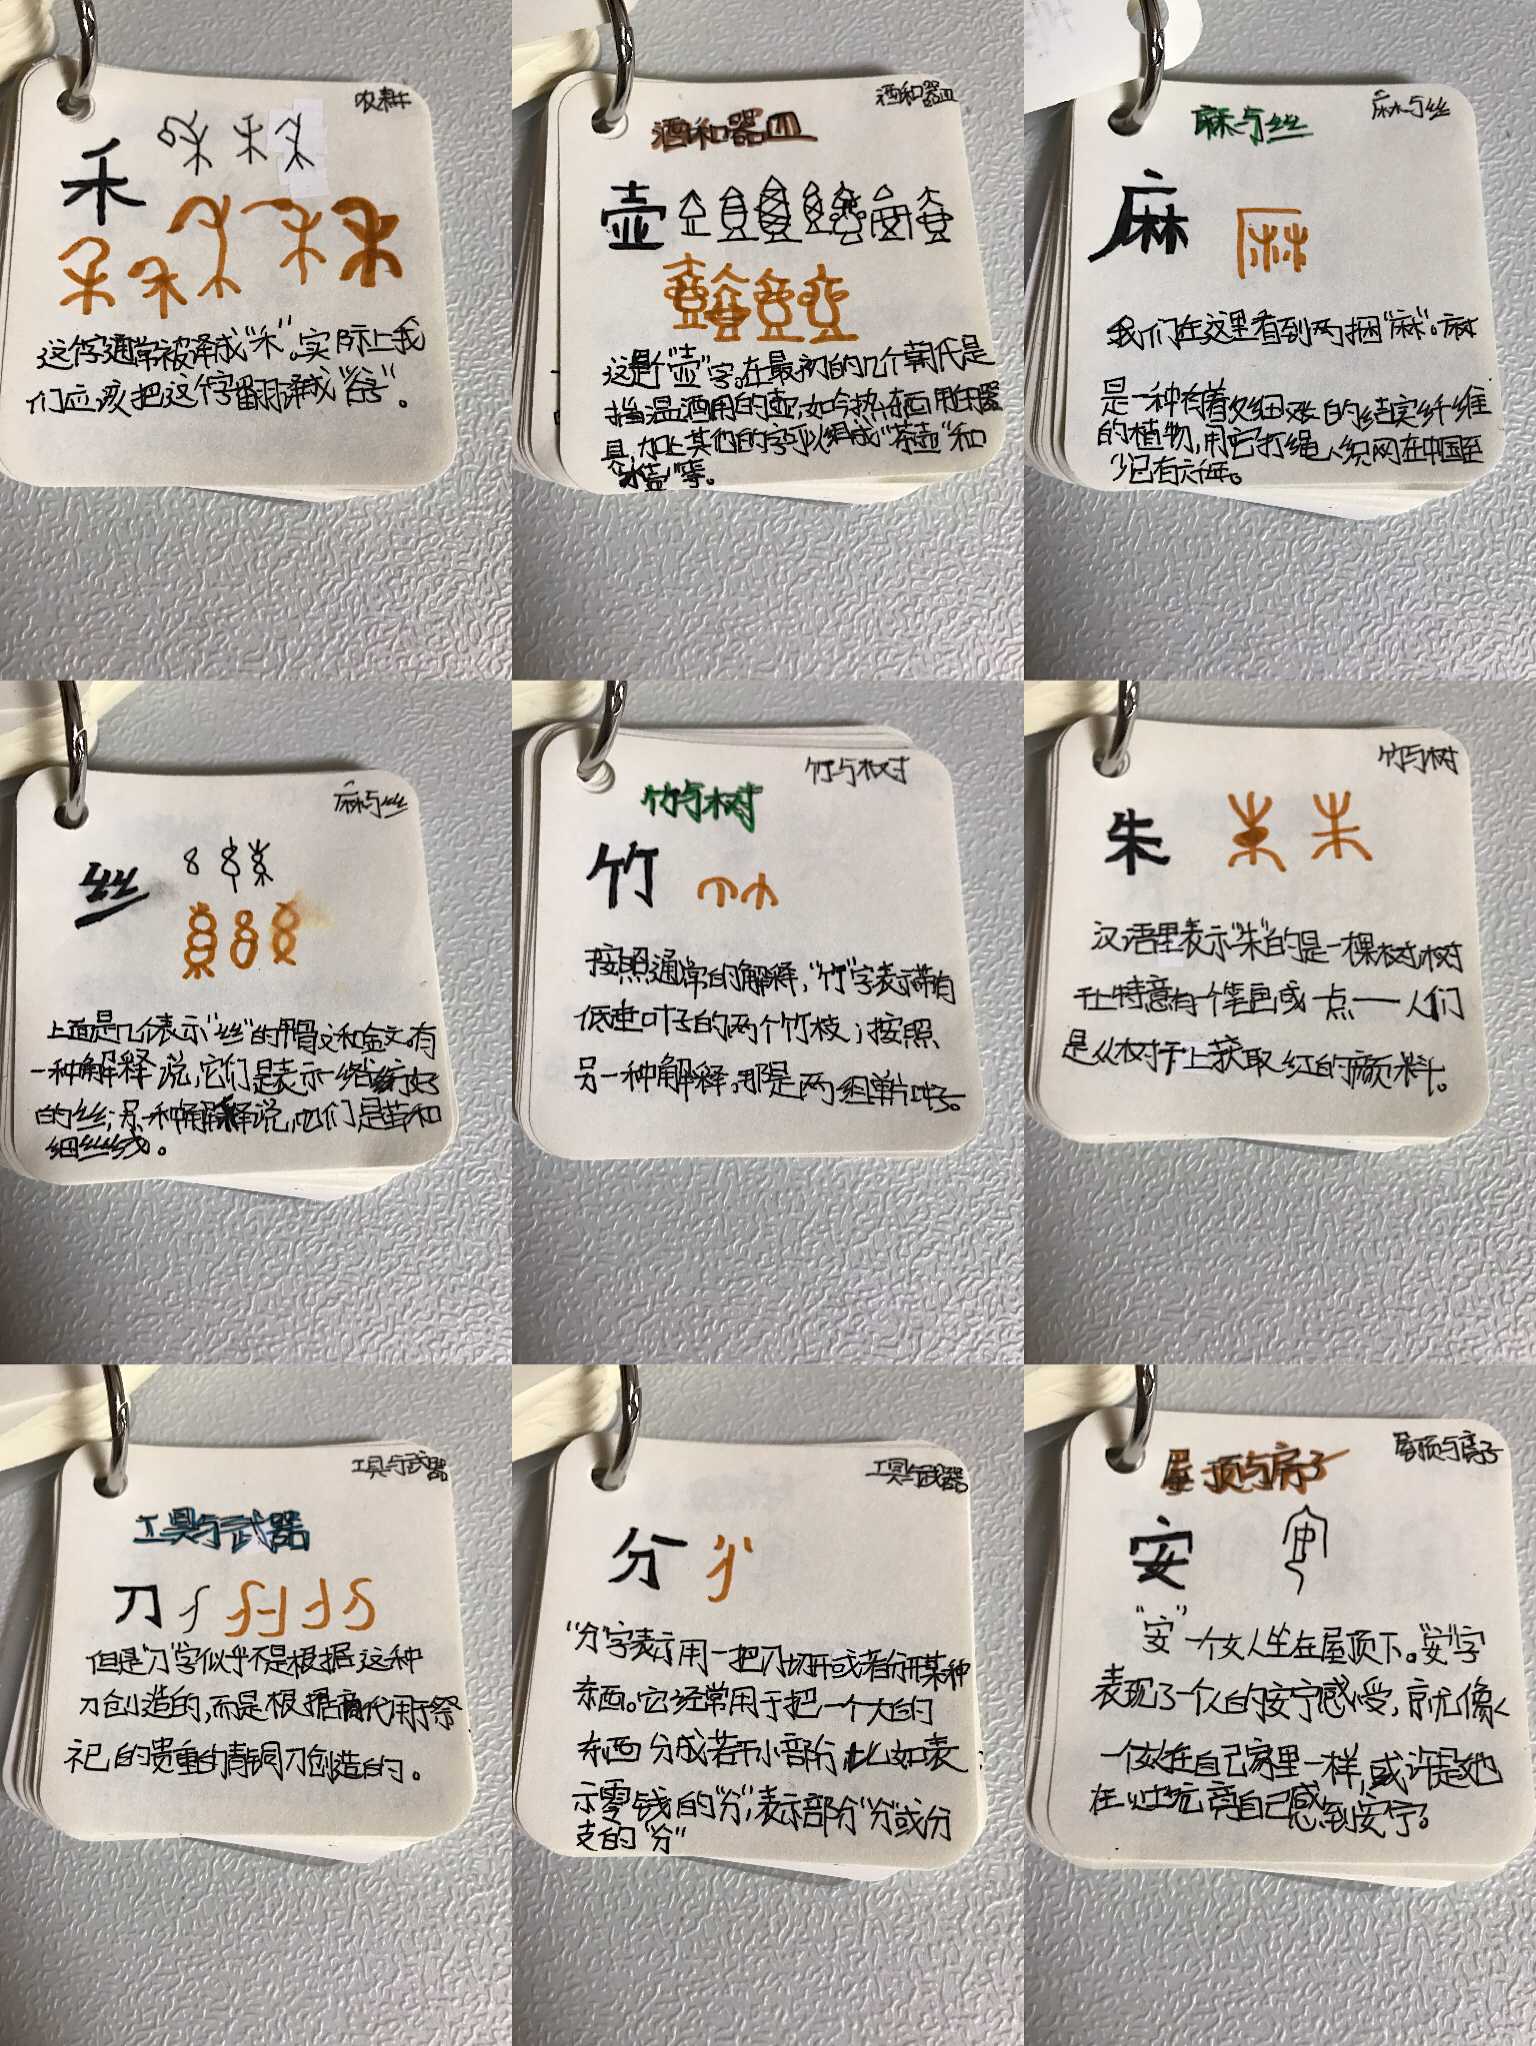 农耕
禾
这个字通常被译成“禾”。实际上我
们应该把这个字翻译成“谷子”。
酒和器皿
酒和器皿
壶
这是个“壶”字。在最初的几个朝代是
指温酒用的壶,如今热东西用的器
具,加上其他的字可以组成“茶壶”和
“水壶”等。
麻与丝
麻与丝
麻
我们在这里看到两捆“麻”。麻
是一种有着又细又长的结实纤维
的植物,用它打绳、织网在中国至
少已有六千年。
麻与丝
丝
上面是几个表示“丝”的甲骨文和金文。有
一种解释说,它们是表示一绺纺好
的丝;另一种解释说,他们是茧和
细丝线。
竹与树
竹与树
竹
按照通常的解释,“竹”字表示带有
低垂叶子的两个竹枝;按照
另一种解释,那是两组单片叶子。
竹与树
朱
汉语里表示“朱”的是一棵树,树
干上特意有一个笔画或一点——人们
是从树干上获取红的颜料。
工具与武器
工具与武器
刀
但是“刀”字似乎不是根据这种
刀创造的,而是根据商代用于祭
祀的贵重的青铜刀创造的。
工具与武器
分
“分”字表示用一把刀切开或者分开某种
东西。它经常用于把一个大的
东西分成若干小部分,比如表
示零钱的“分”,表示部分“分”或分
支的“分”
屋顶与房子
屋顶与房子
安
“安”一个女人坐在屋顶下。“安”字
表现了一个人的安宁感受,就像
一个女在自己家里一样,或许是她
在让炕旁自己感到安宁。